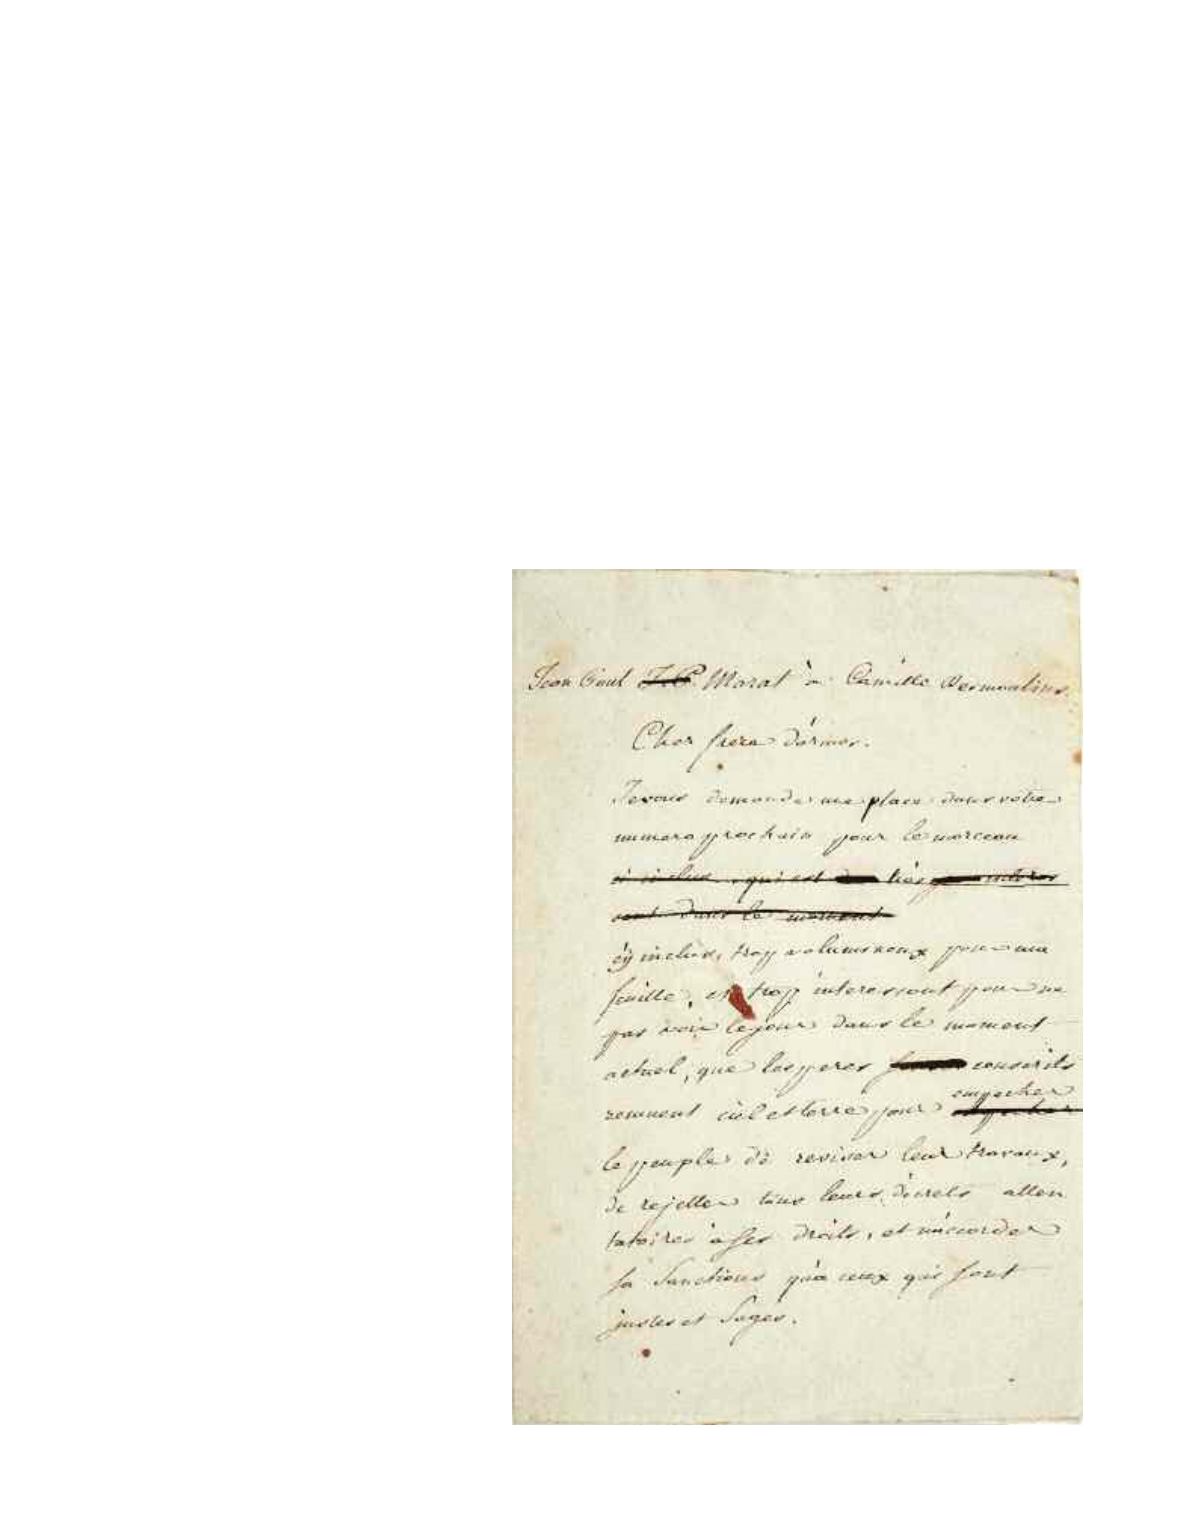 Jean Paul J. P. Marat à Camille Desmoulins.
Cher frere d'armes.
Je vous demande une place dans votre
numero prochain pour le morceau
ci inclus, qui est très interes
sant dans le moment
cy inclus, trop volumineux pour ma
feuille, et trop interessant pour ne
pas voir le jour dans le moment
actuel, que les peres conscrits
empecher
remuent ciel et terre pour
le peuple de reviser leur travaux,
de rejetter tous leurs décrets atten
tatoires à ses droits, et n'accorder
sa Sanctions qu'a ceux qui sont
justes et Sages.